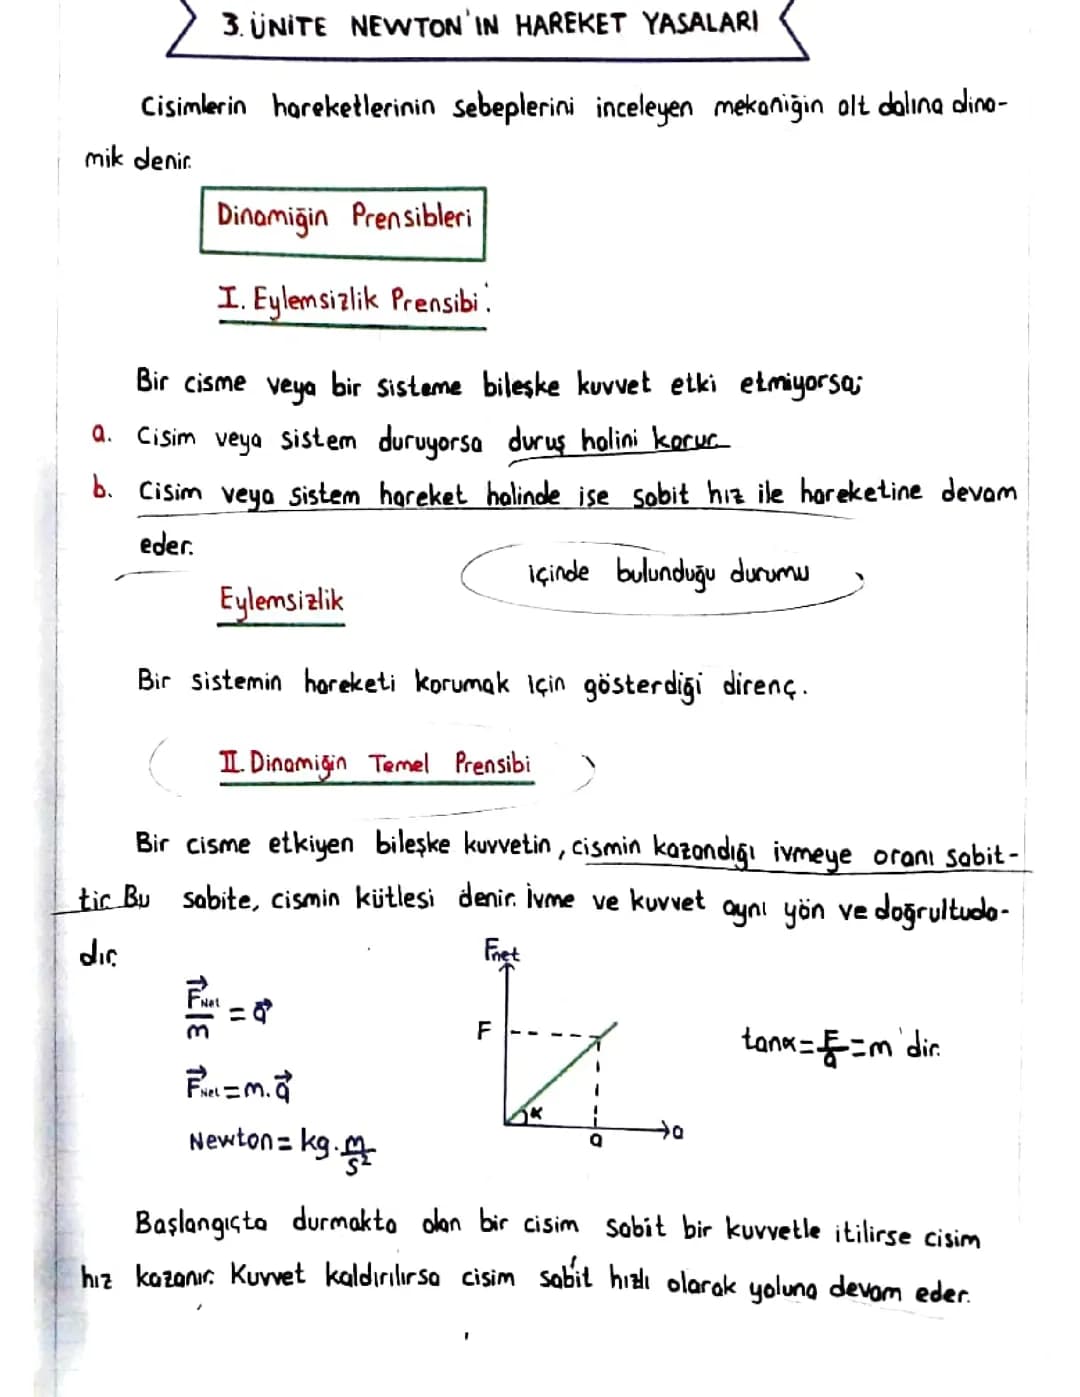 3. ÜNİTE NEWTON'IN HAREKET YASALARI
Cisimlerin hareketlerinin sebeplerini inceleyen mekaniğin alt dalına dina-
mik denir.
Dinamiğin Prensibleri
I. Eylemsizlik Prensibi:
Bir cisme veya bir sisteme bileşke kuvvet etki etmiyorsa;
a. Cisim veya sistem duruyorsa duruş halini korur
b. Cisim veya sistem hareket halinde ise sabit hız ile hareketine devam
eder.
içinde bulunduğu durumu
Eylemsizlik
Bir sistemin hareketi korumak için gösterdiği direnç.
II. Dinamiğin Temel Prensibi
Bir cisme etkiyen bileşke kuvvetin, cismin kazandığı ivmeye oranı sabit-
tir. Bu sabite, cismin kütlesi denir. İvme ve kuvvet aynı yön ve doğrultuda-
dır.
F⃗Net/m = a⃗
F⃗Net = m.a⃗
Newton = kg.m/s²
Fnet
F
α
a
→a
tanα = F/a = m'dir.
Başlangıçta durmakta olan bir cisim sabit bir kuvvetle itilirse cisim
hız kazanır. Kuvvet kaldırılırsa cisim sabit hızlı olarak yoluna devam eder.